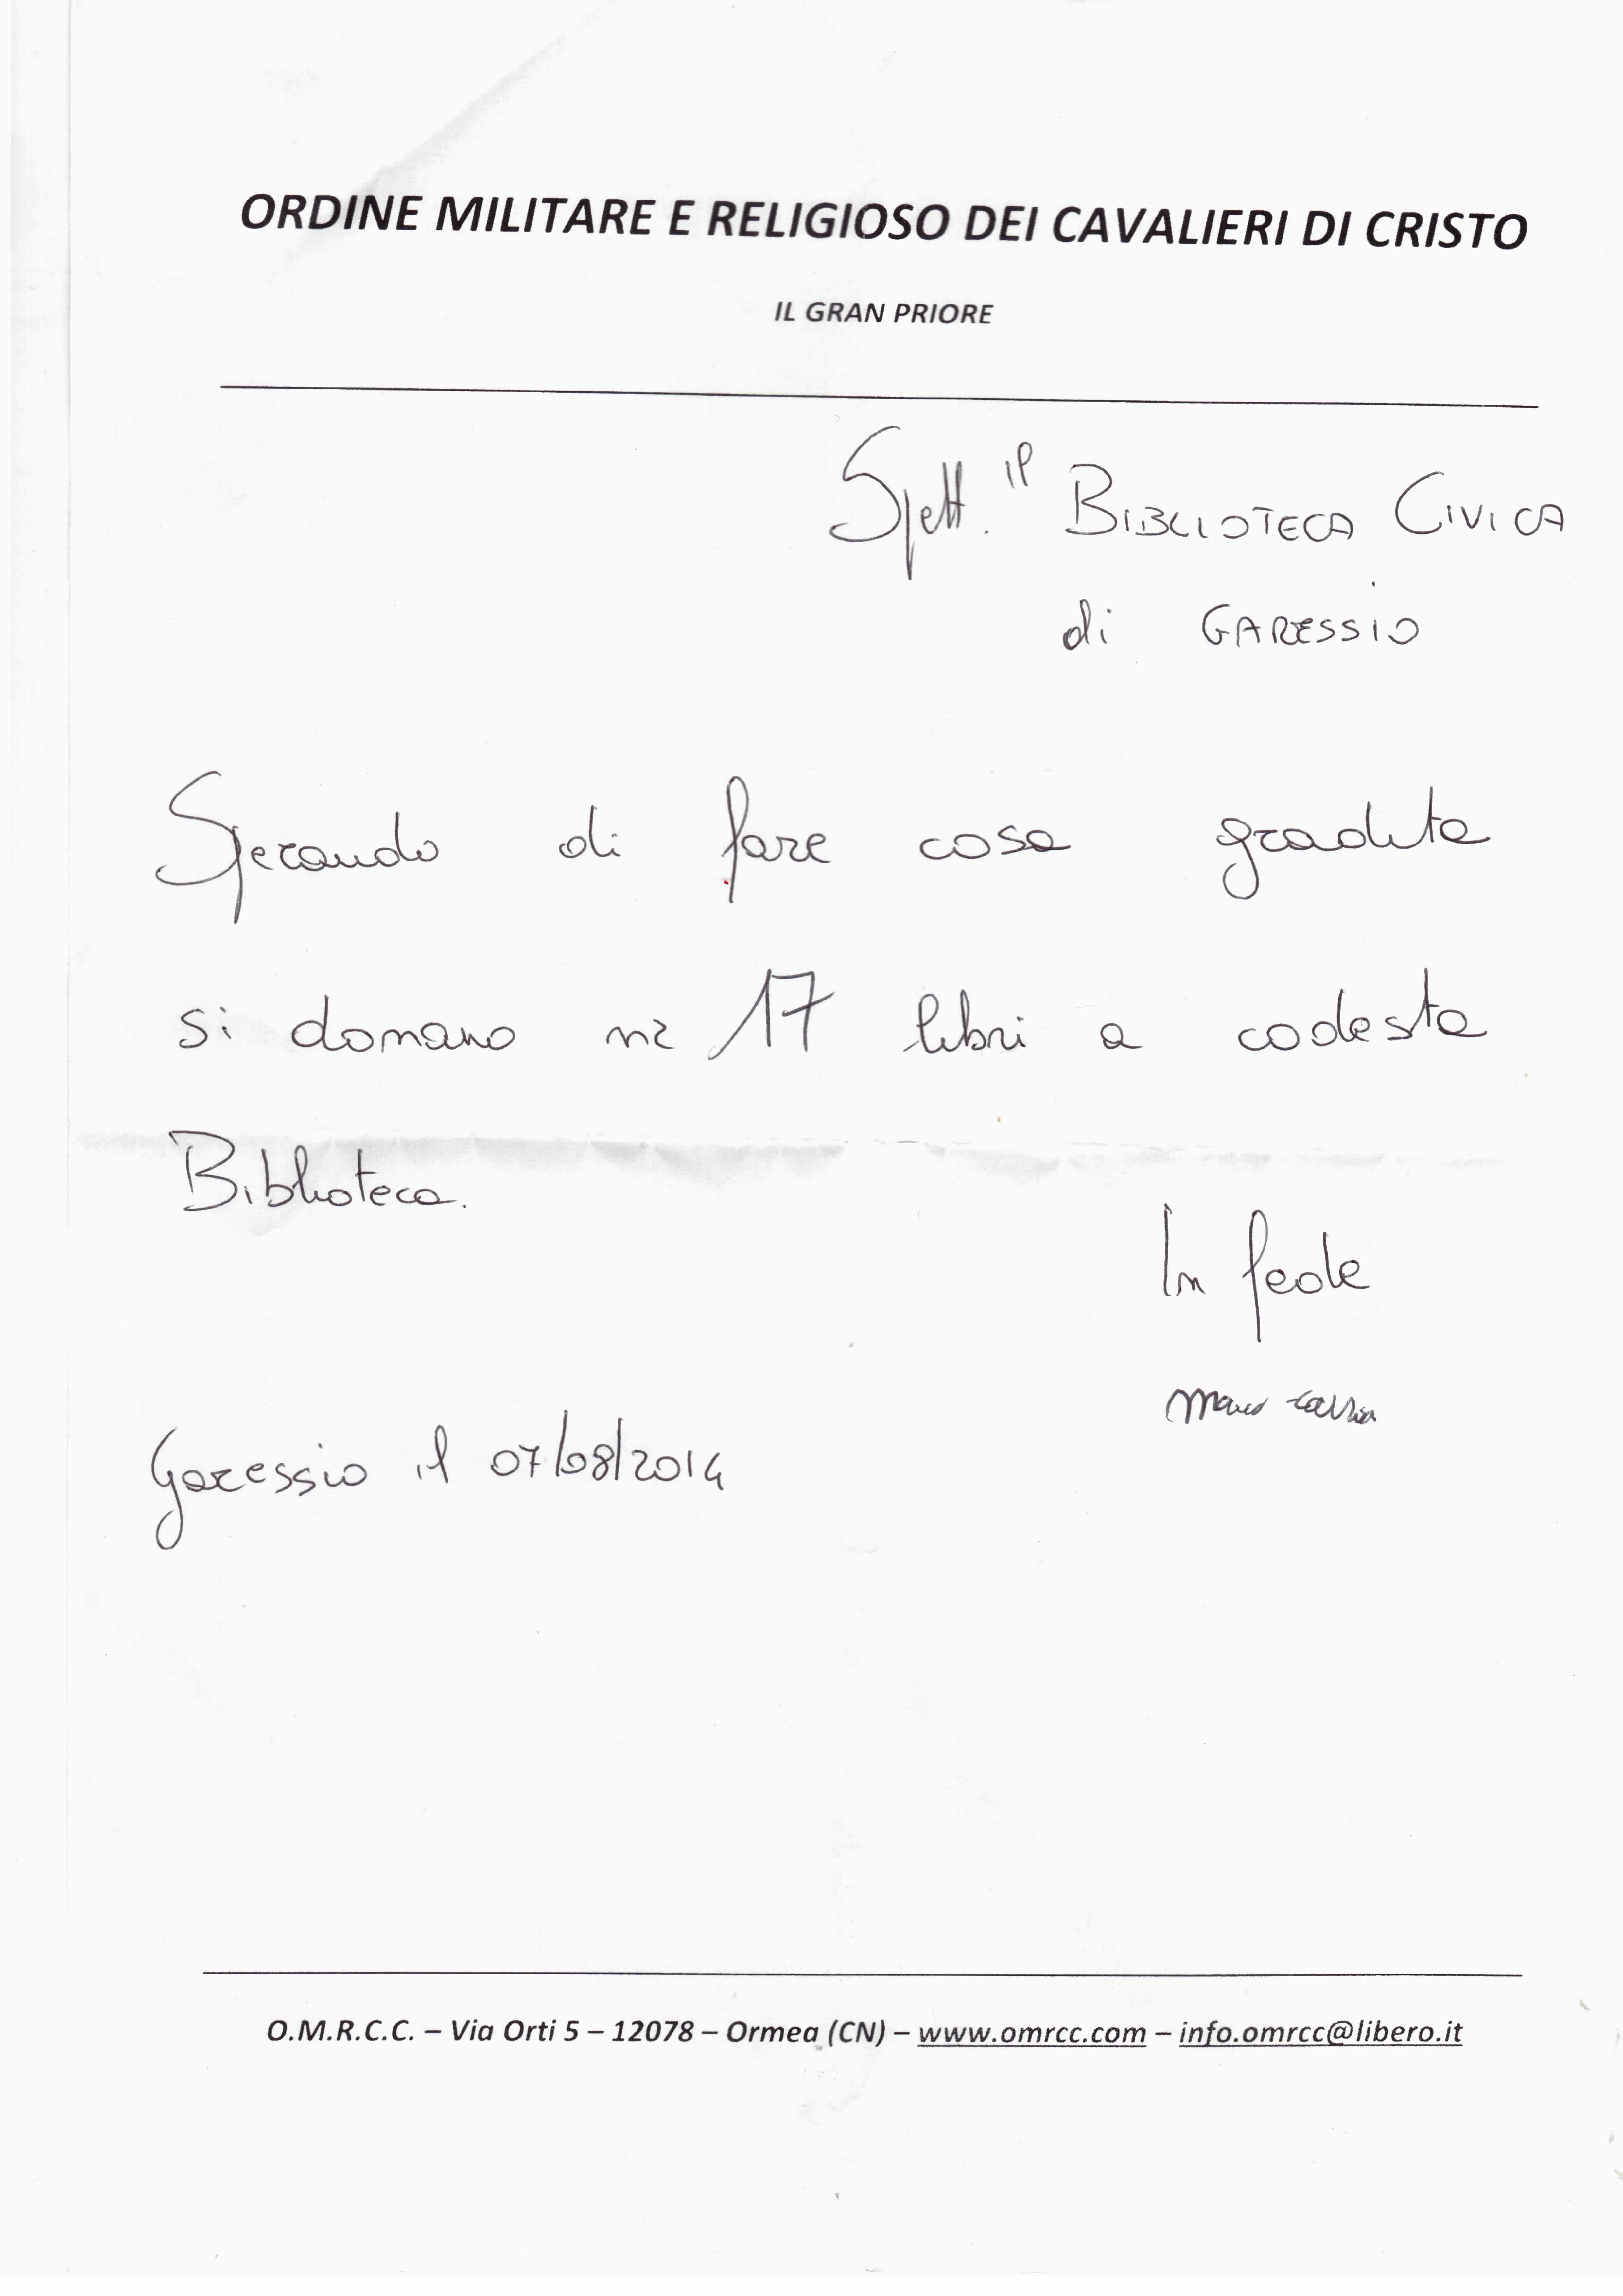 ORDINE MILITARE E RELIGIOSO DEI CAVALIERI DI CRISTO
IL GRAN PRIORE
Spett. il BIBLIOTECA CIVICA
di GARESSIO
Sperando di fare cosa gradita
si donano nr 17 libri a codesta
Biblioteca.
In fede
Garessio il 07/08/2014
O.M.R.C.C. – Via Orti 5 – 12078 – Ormea (CN) – www.omrcc.com – info.omrcc@libero.it